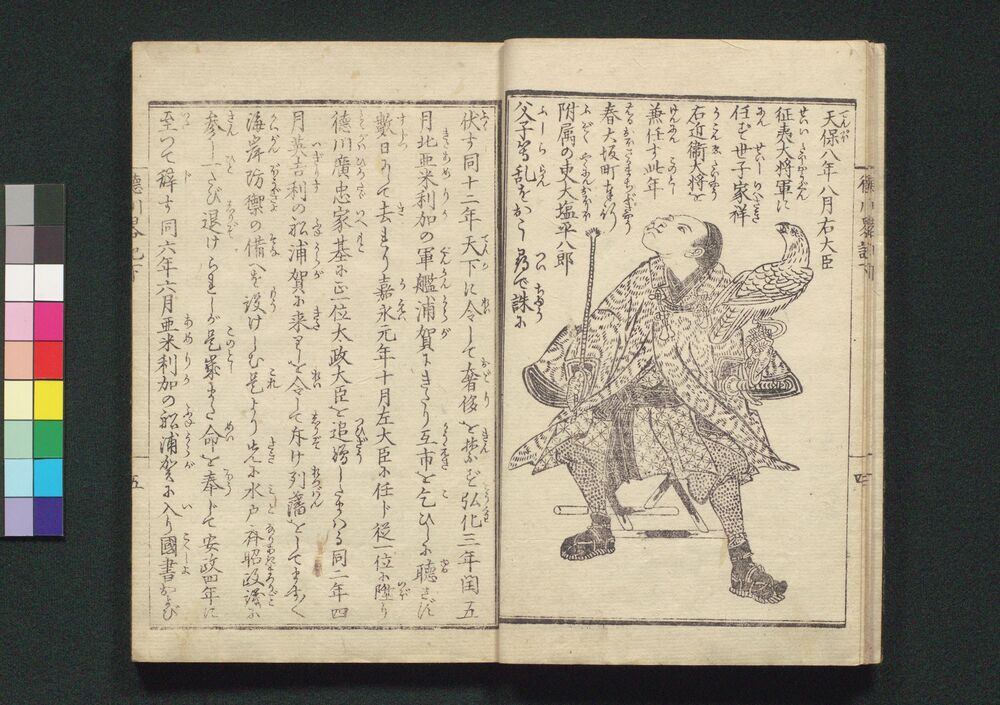 天保八年八月右大臣
征夷大将軍に
任ず世子家祥
右近衛大将を
兼任す此年
春大坂町奉行
附属の吏大塩平八郎
父子等乱を
誅に
伏す同十二年天下に令して奢侈を禁ず弘化三年閏五
月北亜米利加の軍艦浦賀にきたり互市を乞ひしに聴さず
數日にて去まり嘉永元年十月左大臣に任ド従一位に陞り
徳川廣忠家基に正一位太政大臣を追贈したまはる同二年四
月英吉利の舩浦賀に来りしを令して斥け列藩をして
海岸防禦の備へを設けしむ是より先に水戸斉昭政議に
参し一たび退けられしが是歳また命を奉じて安政四年に
至つて辞す同六年六月亜米利加の舩浦賀に入り國書および
徳川畧記下
四
五